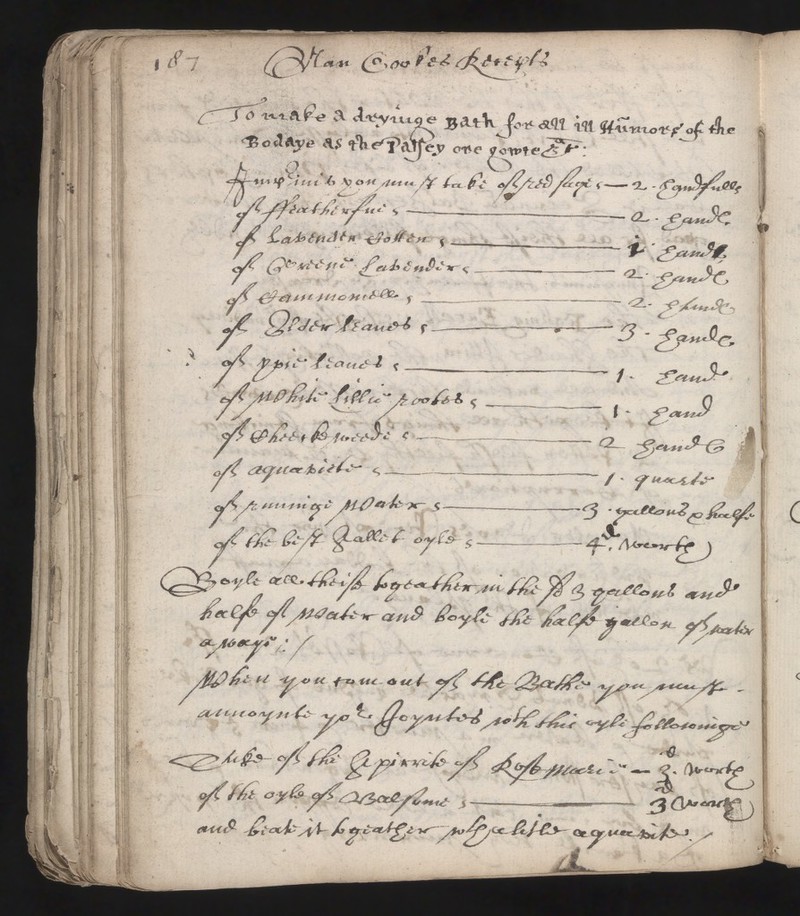 187 Man Cookes Receipts
To make a dryinge Bath for all ill Humors of the
Bodaye as the Palsey ore gowte &c:
you must take of red sage — 2. handfulls
of ffeatherfue — 2. hand
of Lavender Cotten — 1. hand
of Greene Lavender — 2. hand
of Cammomell — 2. hand
of Elder leaues — 3. hand
of yvie leaues — 1. hand
of White Lillie rootes — 1. hand
of Checkeweede — 2 hand
of aquavite — 1. quarte
of runinge Water — 3. gallons & halfe
of the best Sallet oyle — 4d. worth
Boyle all theise togeather in the sd 3 gallons and
halfe of Water and boyle the halfe gallon of water
awaye:/
When you com out of the Bathe you must
annoynte yor Joyntes wth this oyle followinge
Take of the Spirrite of Rose Marie — 3d. worth
of the oyle of Balsome — 3d worth
and beate it togeather wth a litle aquavite./